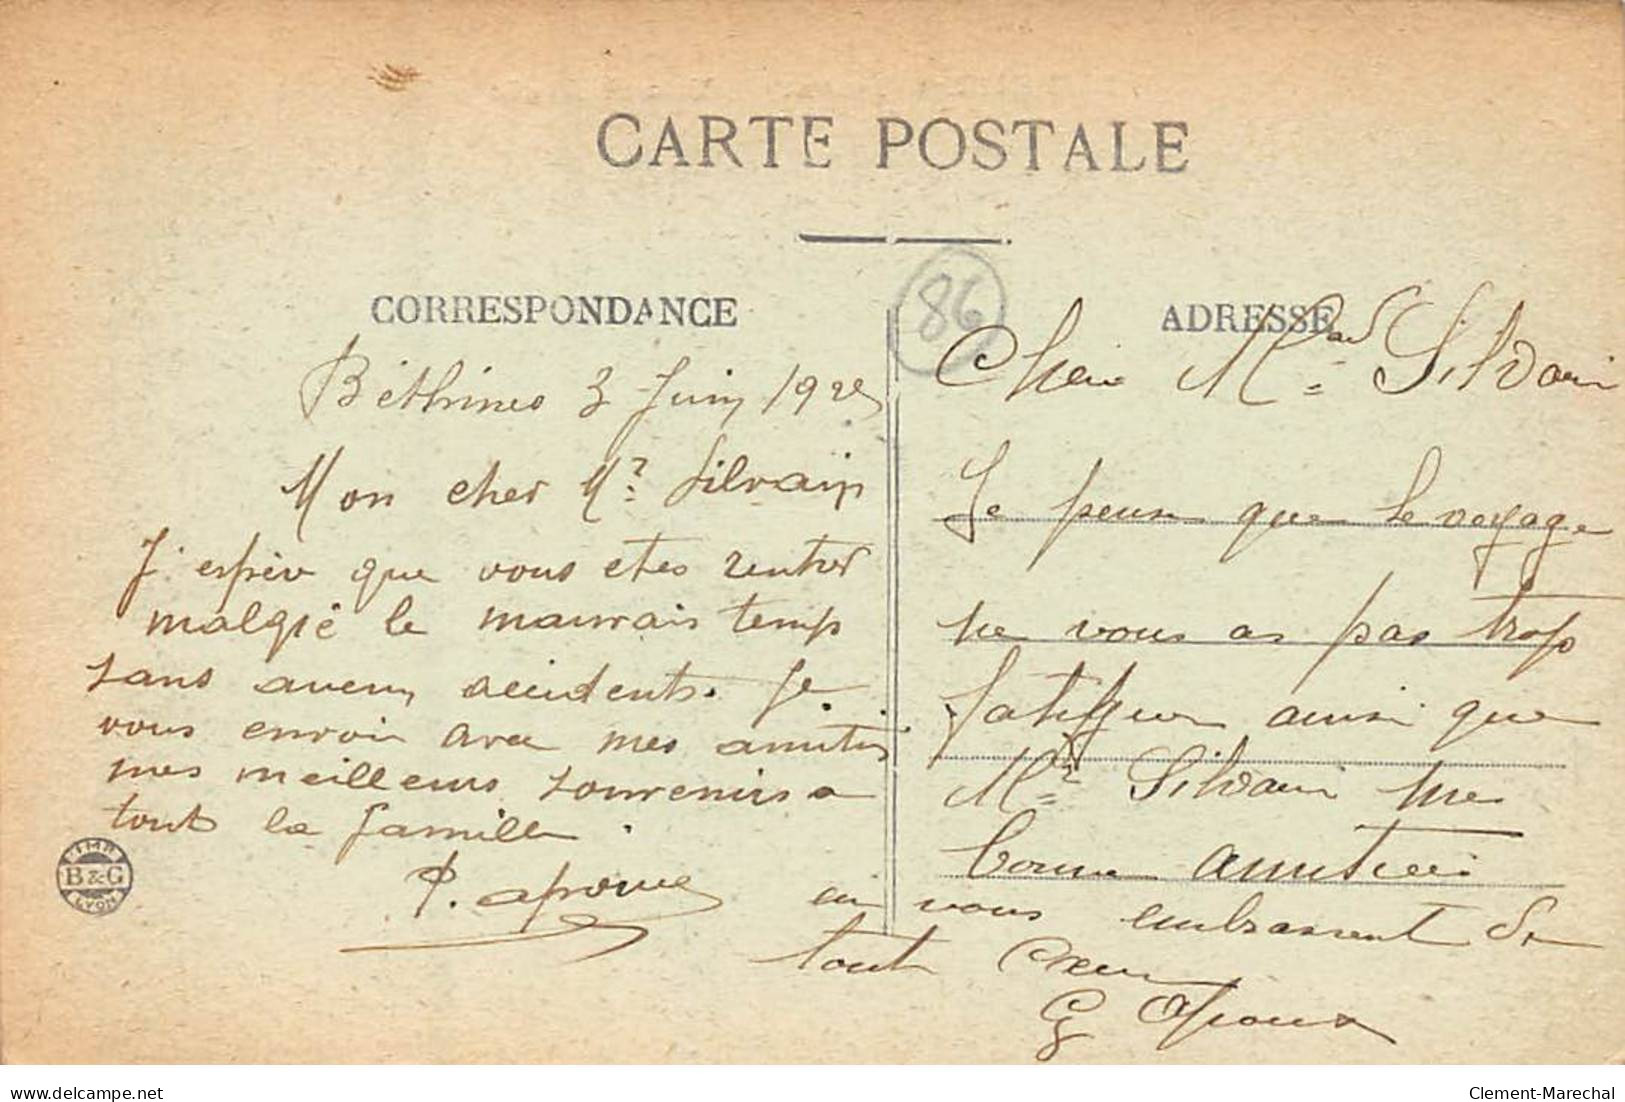 CARTE POSTALE
CORRESPONDANCE
Béthines 3 Juin 192
Mon cher Mr Silvain
J'espèr que vous etes rentrer
malgré le mauvais temp
sans aucun accidents. Je
vous envoir avec mes amitiés
mes meilleurs souvenirs a
tout la famille.
P.
IMP. B & G LYON
86
ADRESSE
Cher Mad Silvain
Je pense que le voyage
ne vous as pas trop
fatiguer ainsi que
Mr Silvain mes
bonne amitiés
en vous embrassent de
tout Cœur
G
delcampe.net
Clement-Marechal